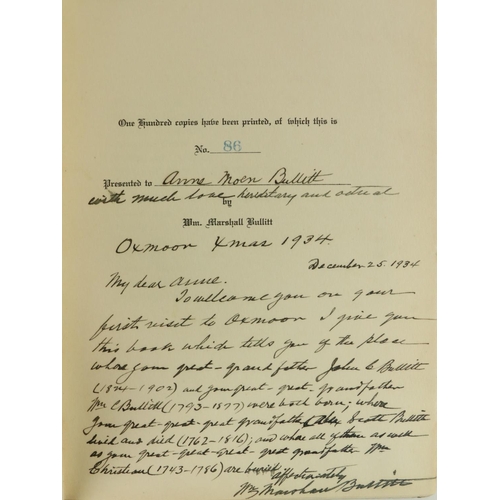 One Hundred copies have been printed, of which this is
No. 86
Presented to Anne Moen Bullitt
with much love hereditary and actual
by
Wm. Marshall Bullitt
Oxmoor Xmas 1934.
December 25, 1934
My dear Anne.
To welcome you on your
first visit to Oxmoor I give you
this book which tells you of the place
where your great-grandfather John C Bullitt
(1824-1902) and your great-great-grandfather
Wm C Bullitt (1793-1877) were both born; where
your great-great-great grandfather Alex Scott Bullitt
lived and died (1762-1816); and where all of them as well
as your great-great-great-great grandfather Wm
Christian (1743-1786) are buried.
affectionately
Wm Marshall Bullitt